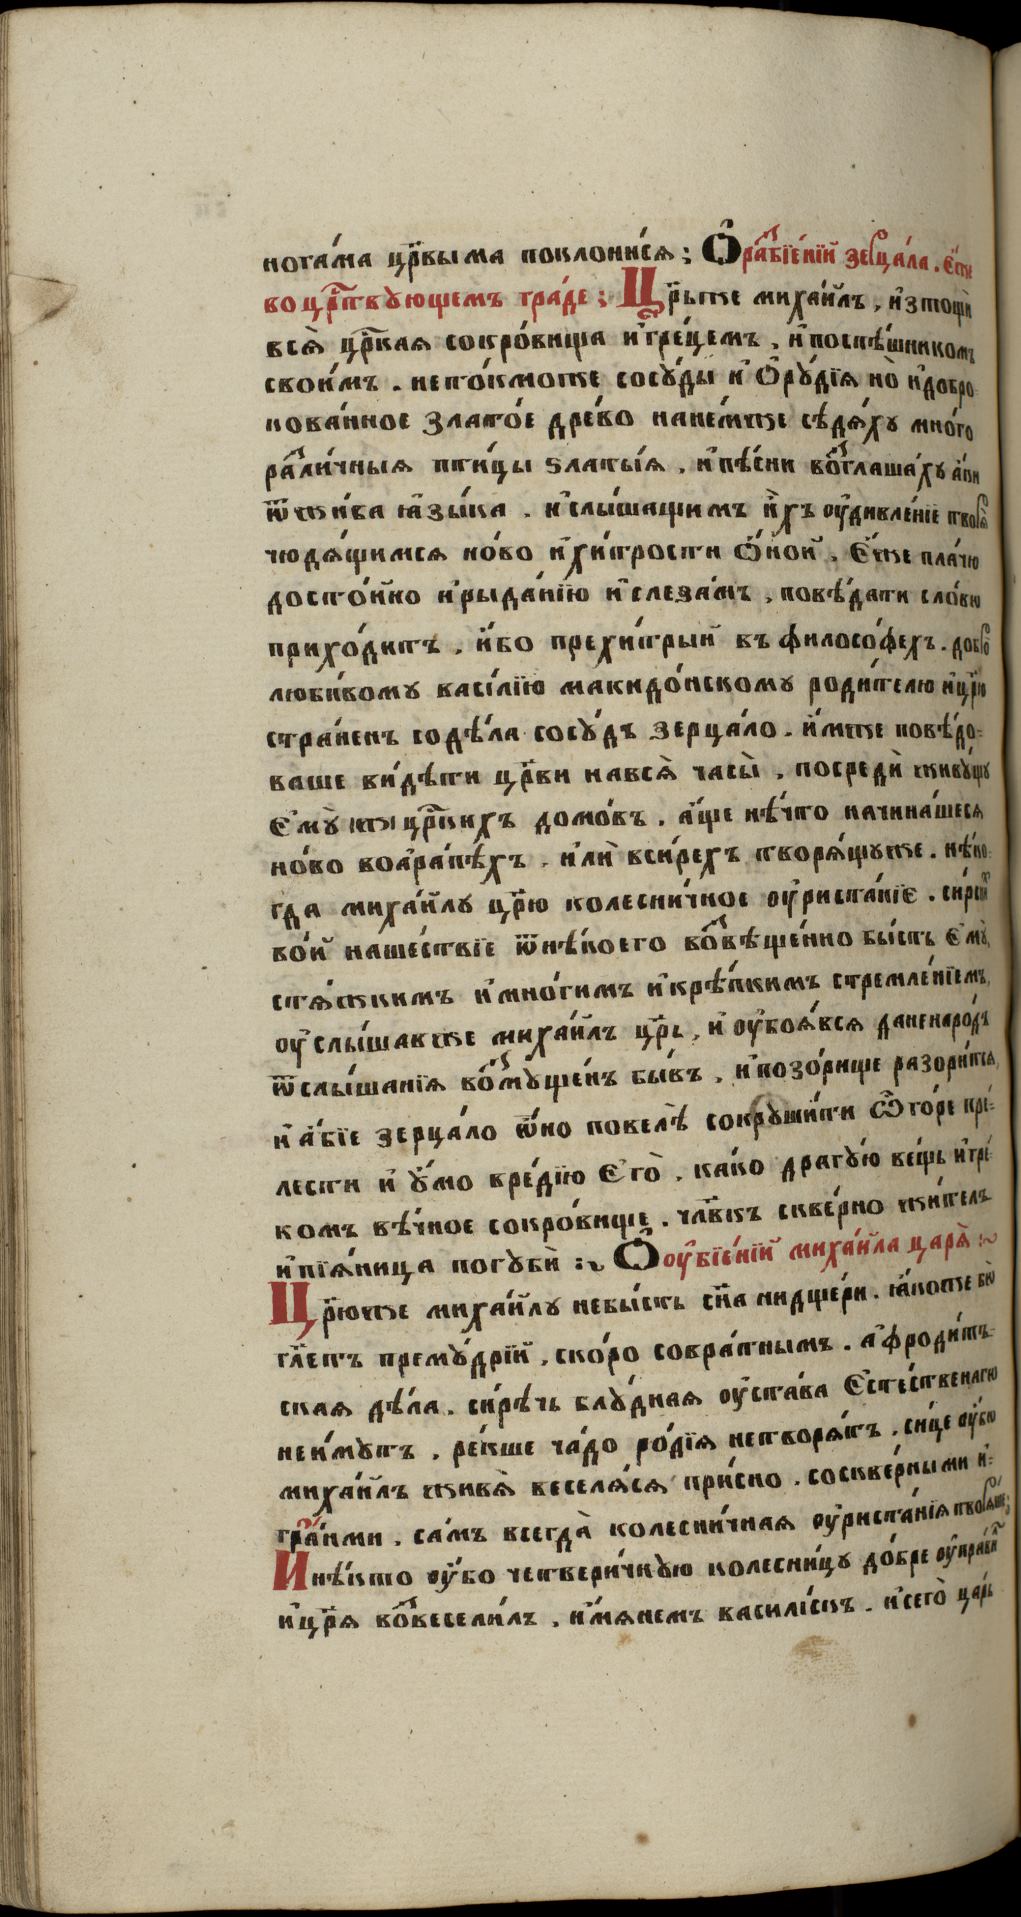 нога́ма цр҃кыма поклони́сѧ; Ѽ ра́ꙁбїе́нїй зе́рцала. є҆́же
во цр҃ствꙋющемъ гра́де; Цр҃ьже михаи́лъ, и҆зтощѝ
всѧ̀ цр҃каѧ сокро́вища и҆гре́цемъ, и҆поспѣ́шникомъ
свои́мъ. непо́кможе сосꙋ́ды и҆ ѻ҆рꙋ́дїѧ но̀ и҆добро
кова́нное злато́е дре́во нане́мже сѣдѧ́хꙋ мно́го
разли́чныѧ пти́цы ѕлаты́ѧ, и҆пѣ́сни возглаша́хꙋ а҆́ки
ѿжи́ва ꙗ҆зы́ка. и҆слы́шащимъ и҆̀хъ ᲂу҆дивле́нїе творѧ̀
чюдѧ́щимсѧ но́во и҆хи́трости ѻ҆́ной. є҆́же пла́чю
досто́йно и҆рыда́нїю и҆слеза́мъ, повѣ́дати сло́вꙋ
прихо́дитъ, и҆́бо прехи́трый въ филосо́фехъ. добро
люби́вомꙋ васі́лїю макидо́нскомꙋ роди́телю и҆цр҃ю
стра́ненъ содѣ́ла сосꙋ́дъ зерца́ло. и҆́мже повѣ́до-
ваше ви́дѣти цр҃ви навсѧ̀ часы̀, посредѝ живꙋ́щꙋ
є҆мꙋ̀ цр҃кихъ домо́въ. а҆́ще нѣ́что начина́шесѧ
но́во воа҆ра́пѣхъ, и҆лѝ всирехъ творѧ́щꙋже. нѣ́ко-
гда михаи́лꙋ цр҃ю колесни́чное ᲂу҆риста́нїе. си́рски
во́й наше́ствїе ѿнѣ́коего возвѣще́нно бы́сть є҆мꙋ̀,
стѧ́жкимъ и҆мно́гимъ и҆крѣ́пкимъ стремле́нїемъ,
ᲂу҆слы́шавже михаи́лъ цр҃ь, и҆ ᲂу҆боѧ́всѧ даненаро́дъ
ѿслы́шанїѧ возмꙋще́нъ бы́въ, и҆позо́рище разори́тсѧ
и҆ а҆́бїе зерца́ло ѿно повелѣ̀ сокрꙋши́ти Ѽ го́ре пре́-
лести и҆ ᲂу҆́мо вре́дїю є҆гѡ̀, ка́ко драгꙋ́ю ве́щь и҆грѣ́-
комъ вѣ́чное сокро́вище. чл҃вкъ скве́рно жи́тель
и҆пїѧ́ница погꙋбѝ :~ Ѽ ᲂу҆бїе́нїй михаи́ла царѧ̀ :~
Цр҃юже михаи́лꙋ небы́сть сн҃а нидще́ри. ꙗ҆́коже бо̀
гл҃етъ премꙋ́дрїй, ско́ро совра́тнымъ. а҆фроди́тъ-
скаѧ дѣ́ла. си́рѣчь блꙋ́днаѧ ᲂу҆ста́ва є҆сте́ственаго
неи́мꙋтъ, ре́кше ча́до ро́дїѧ нетворѧ́тъ, си́це ᲂу҆́бо
михаи́лъ живѧ̀ веселѧ́сѧ при́сно. соскве́рными и҆-
гра́ни. са́мъ всегда̀ колесни́чнаѧ ᲂу҆риста́нїѧ творѧ́ше;
И нѣ́кто ᲂу҆́бо четвери́чнꙋю колесни́цꙋ до́бре ᲂу҆пра́ви
и҆цр҃ѧ возвесели́лъ, и҆́мѧнемъ васили́скъ. и҆сего̀ ца́рь